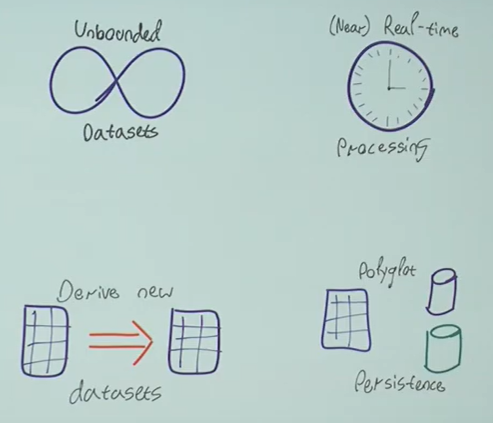 Unbounded
Datasets
(Near) Real-time
Processing
Derive new
datasets
Polyglot
Persistence